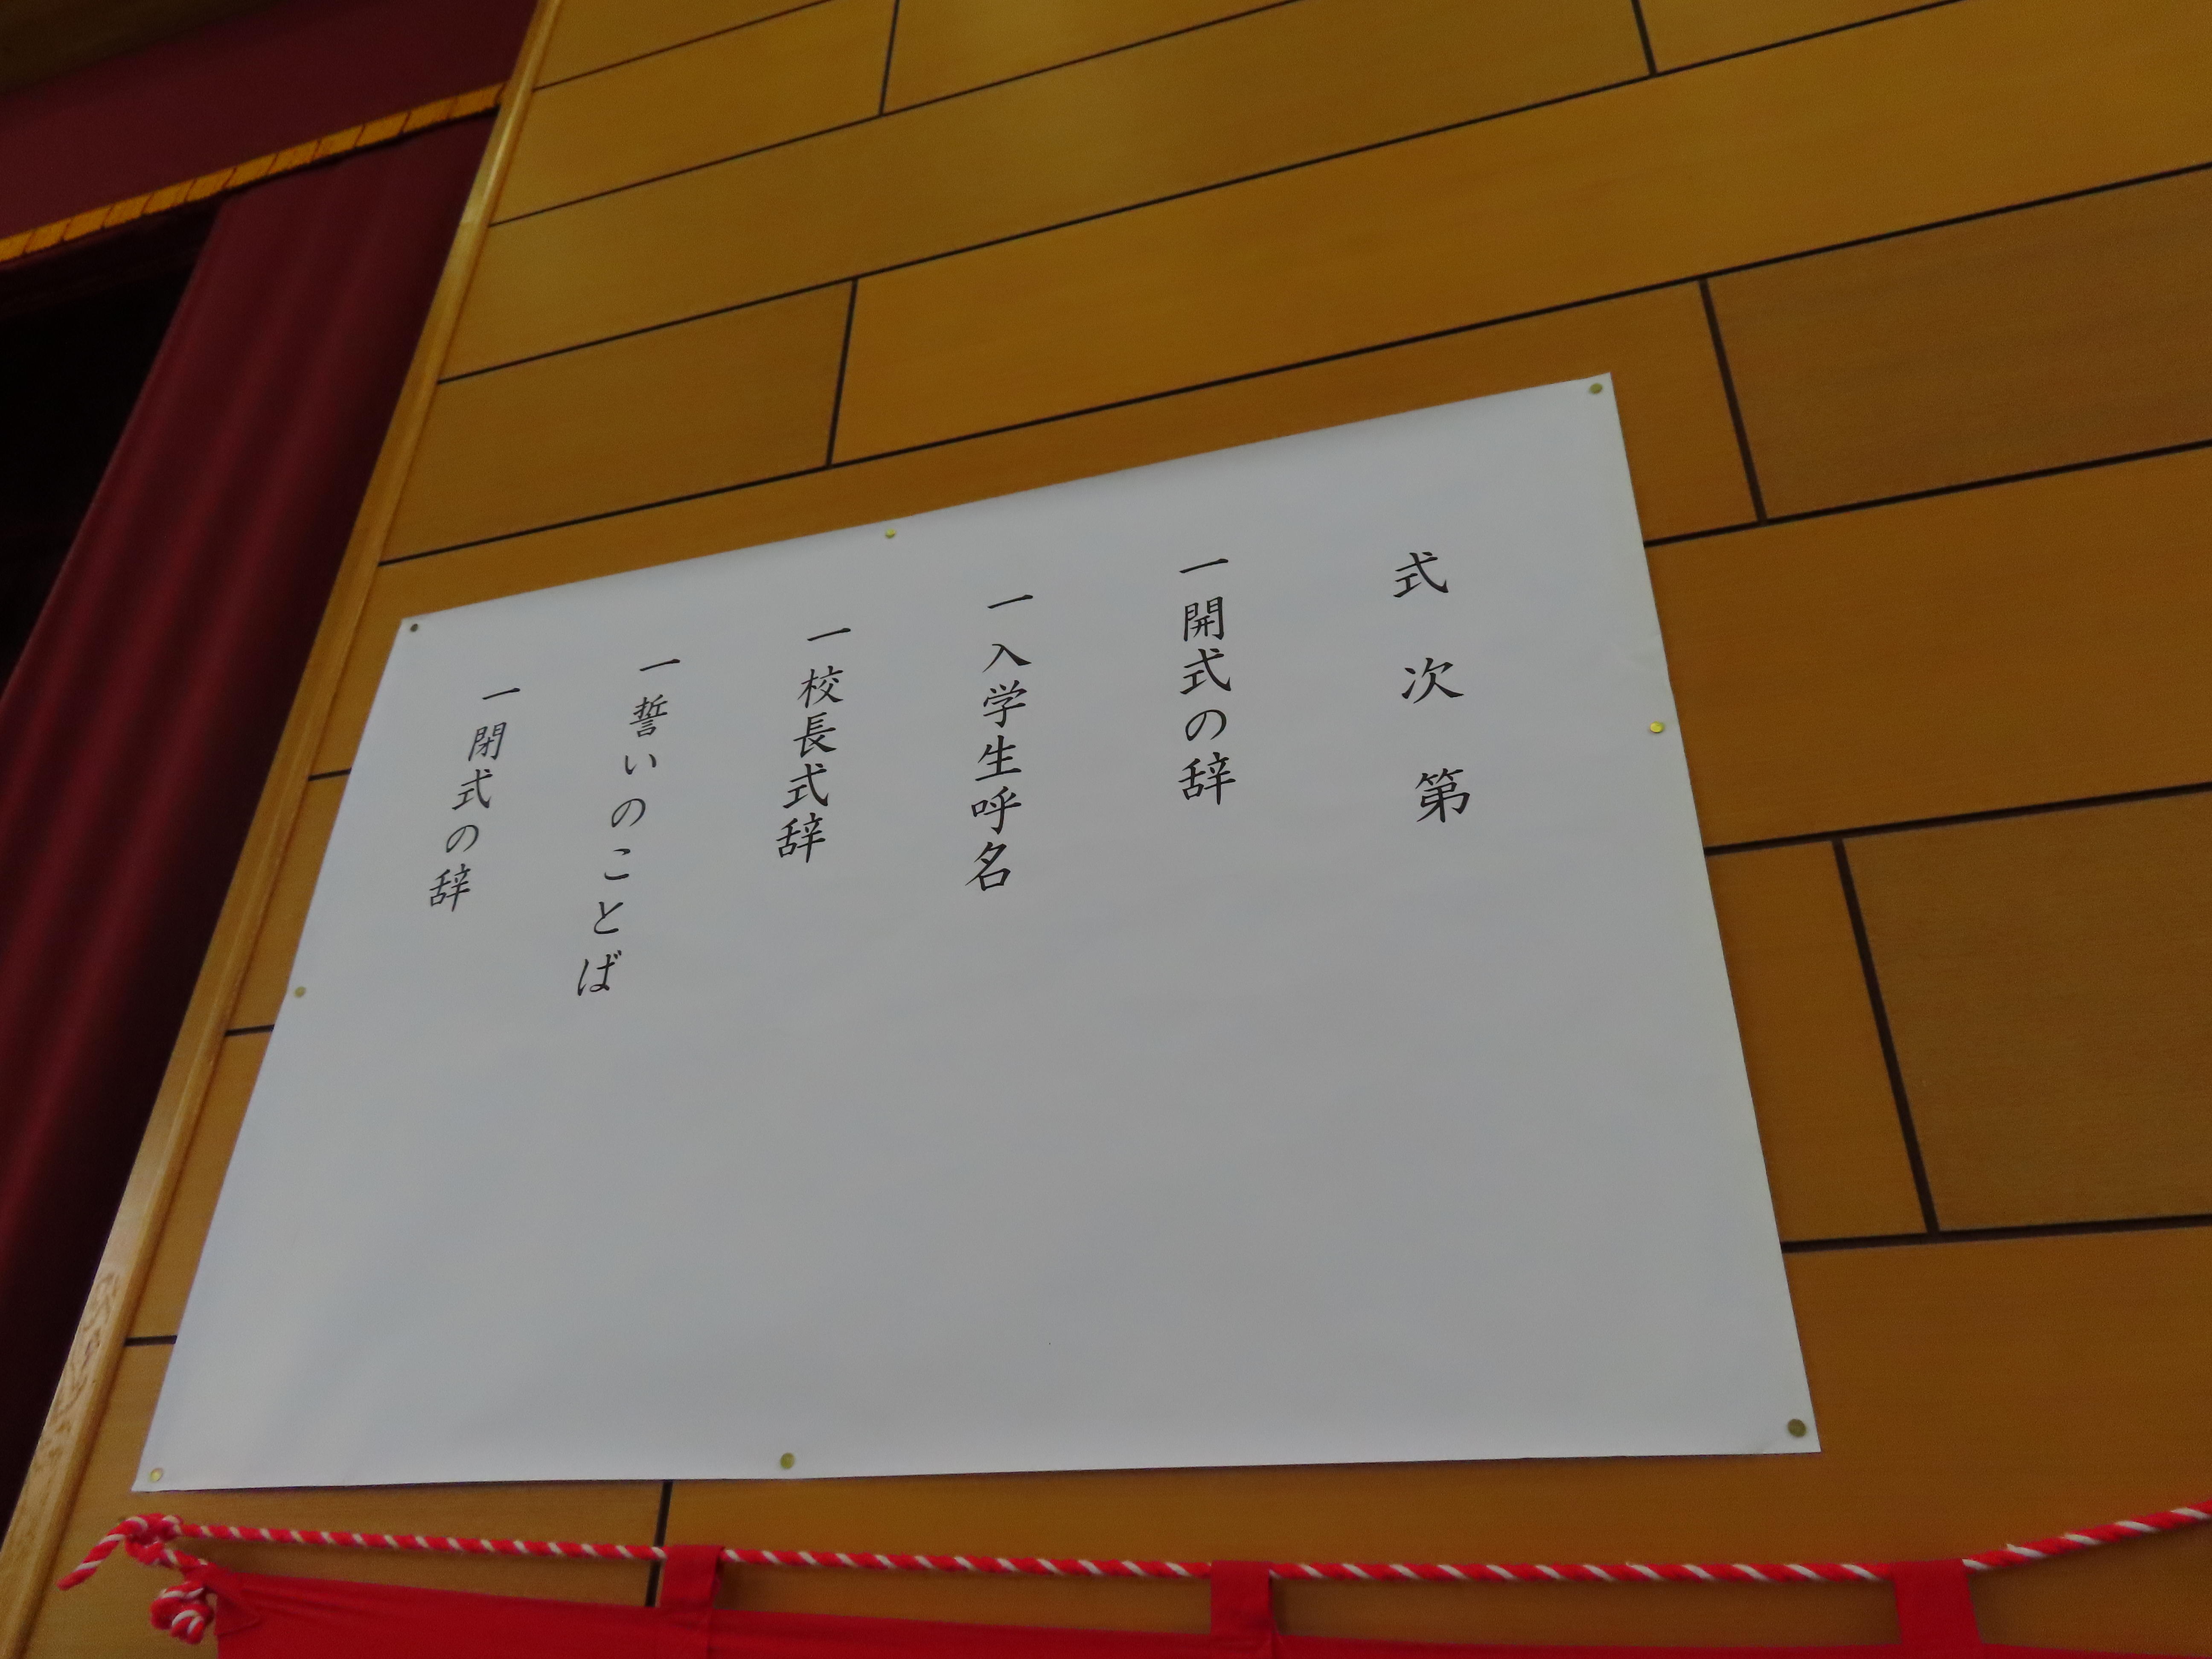 式次第
一 開式の辞
一 入学生呼名
一 校長式辞
一 誓いのことば
一 閉式の辞